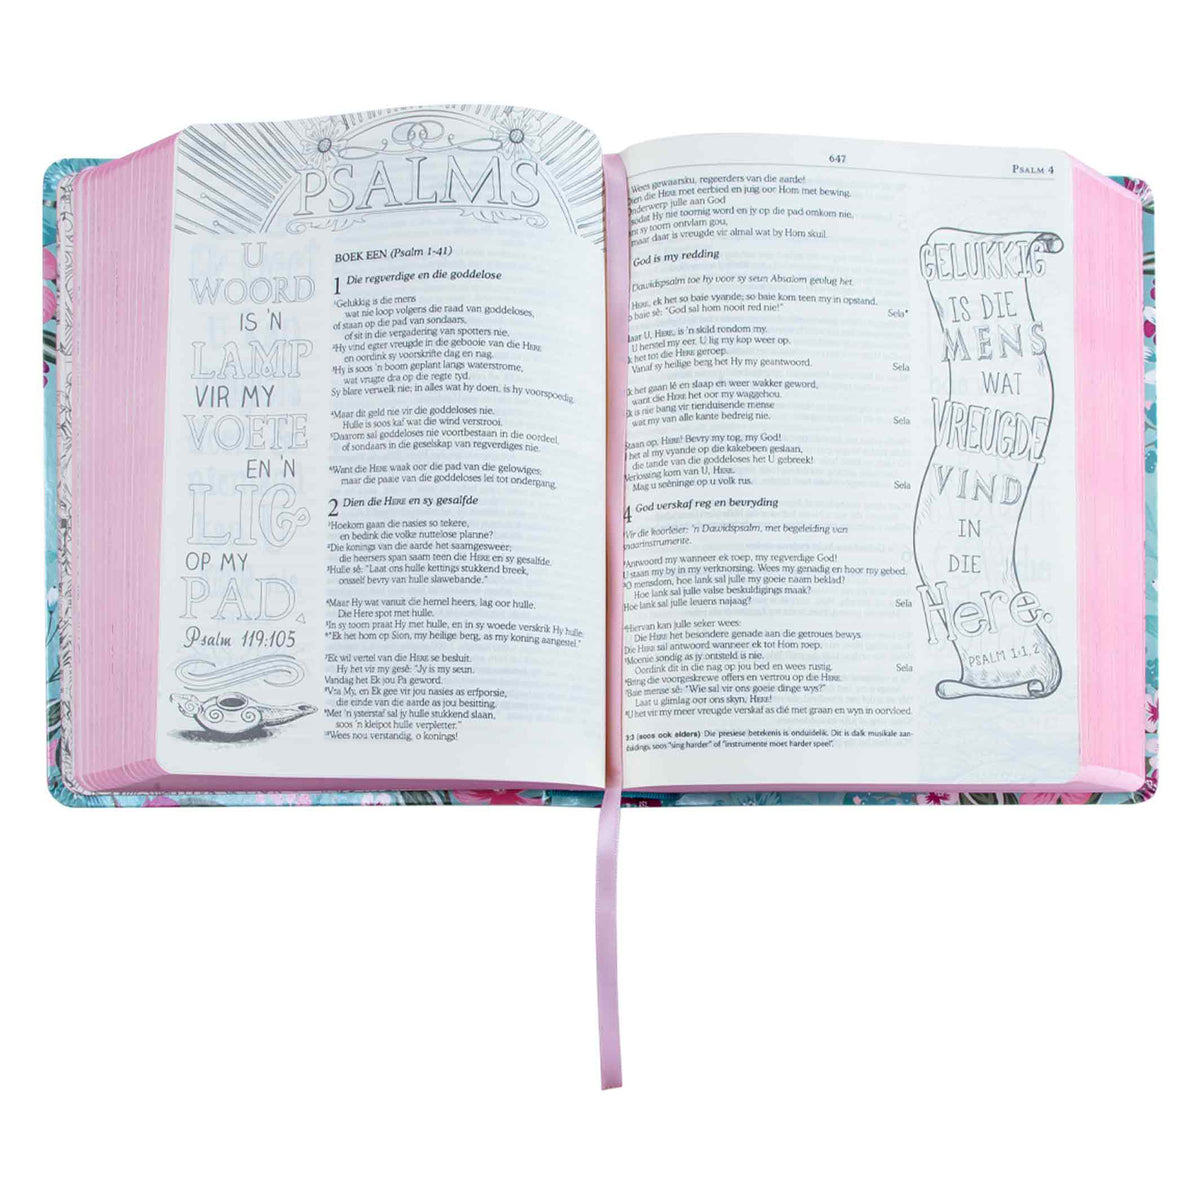 PSALMS
U
WOORD
IS 'N
LAMP
VIR MY
VOETE
EN 'N
LIG
OP MY
PAD.
Psalm 119:105
BOEK EEN (Psalm 1-41)
1 Die regverdige en die goddelose
¹Gelukkig is die mens
wat nie loop volgens die raad van goddeloses,
of staan op die pad van sondaars,
of sit in die vergadering van spotters nie.
²Hy vind egter vreugde in die gebooie van die HERE
en oordink sy voorskrifte dag en nag.
³Hy is soos 'n boom geplant langs waterstrome,
wat vrugte dra op die regte tyd.
Sy blare verwelk nie; in alles wat hy doen, is hy voorspoedig.
⁴Maar dit geld nie vir die goddeloses nie.
Hulle is soos kaf wat die wind verstrooi.
⁵Daarom sal goddeloses nie voortbestaan in die oordeel,
of sondaars in die geselskap van regverdiges nie.
⁶Want die HERE waak oor die pad van die gelowiges;
maar die paaie van die goddeloses lei tot ondergang.
2 Dien die HERE en sy gesalfde
¹Hoekom gaan die nasies so tekere,
en bedink die volke nuttelose planne?
²Die konings van die aarde het saamgesweer;
die heersers span saam teen die HERE en sy gesalfde.
³Hulle sê: "Laat ons hulle kettings stukkend breek,
onsself bevry van hulle slawebande."
⁴Maar Hy wat vanuit die hemel heers, lag oor hulle.
Die Here spot met hulle.
⁵In sy toorn praat Hy met hulle, en in sy woede verskrik Hy hulle:
⁶"Ek het hom op Sion, my heilige berg, as my koning aangestel."
⁷Ek wil vertel van die HERE se besluit.
Hy het vir my gesê: "Jy is my seun.
Vandag het Ek jou Pa geword.
⁸Vra My, en Ek gee vir jou nasies as erfporsie,
die einde van die aarde as jou besitting.
⁹Met 'n ysterstaf sal jy hulle stukkend slaan,
soos 'n kleipot hulle verpletter."
¹⁰Wees nou verstandig, o konings!
647
PSALM 4
Wees gewaarsku, regeerders van die aarde!
Dien die HERE met eerbied en juig oor Hom met bewing.
Onderwerp julle aan God
sodat Hy nie toornig word en jy op die pad omkom nie,
want sy toorn ontvlam gou,
maar daar is vreugde vir almal wat by Hom skuil.
God is my redding
Dawidspsalm toe hy voor sy seun Absalom gevlug het.
HERE, ek het so baie vyande; so baie kom teen my in opstand.
So baie sê: "God sal hom nooit red nie!"
Sela*
Maar U, HERE, is 'n skild rondom my.
U herstel my eer, U lig my kop weer op.
Ek het tot die HERE geroep.
Vanaf sy heilige berg het Hy my geantwoord.
Sela
Ek het gaan lê en slaap en weer wakker geword,
want die HERE het oor my waggehou.
Ek is nie bang vir tienduisende mense
wat my van alle kante bedreig nie.
Sela
Staan op, HERE! Bevry my tog, my God!
het al my vyande op die kakebeen geslaan,
die tande van die goddeloses het U gebreek!
Verlossing kom van U, HERE.
Mag u seëninge op u volk rus.
Sela
4 God verskaf reg en bevryding
Vir die koorleier: 'n Dawidspsalm, met begeleiding van
snaarinstrumente.
²Antwoord my wanneer ek roep, my regverdige God!
U staan my by in my verknorsing. Wees my genadig en hoor my gebed.
³O mensdom, hoe lank sal julle my goeie naam beklad?
Hoe lank sal julle valse beskuldigings maak?
Hoe lank sal julle leuens najaag?
Sela
⁴Hiervan kan julle seker wees:
Die HERE het besondere genade aan die getroues bewys.
Die HERE sal antwoord wanneer ek tot Hom roep.
⁵Moenie sondig as jy ontsteld is nie.
Oordink dit in die nag op jou bed en wees rustig.
Sela
⁶Bring die voorgeskrewe offers en vertrou op die HERE.
⁷Baie mense sê: "Wie sal vir ons goeie dinge wys?"
Laat u glimlag oor ons skyn, HERE!
⁸U het vir my meer vreugde verskaf as dié met graan en wyn in oorvloed.
3:3 (soos ook elders) Die presiese betekenis is onduidelik. Dit is dalk musikale aan-
duidings, soos "sing harder" of "instrumente moet harder speel".
GELUKKIG
IS DIE
MENS
WAT
VREUGDE
VIND
IN
DIE
Here.
PSALM 1:1,2